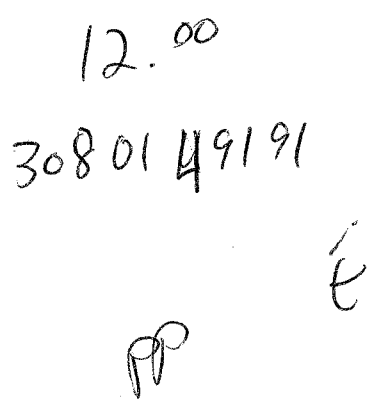 12.00
3080149191
t
pp